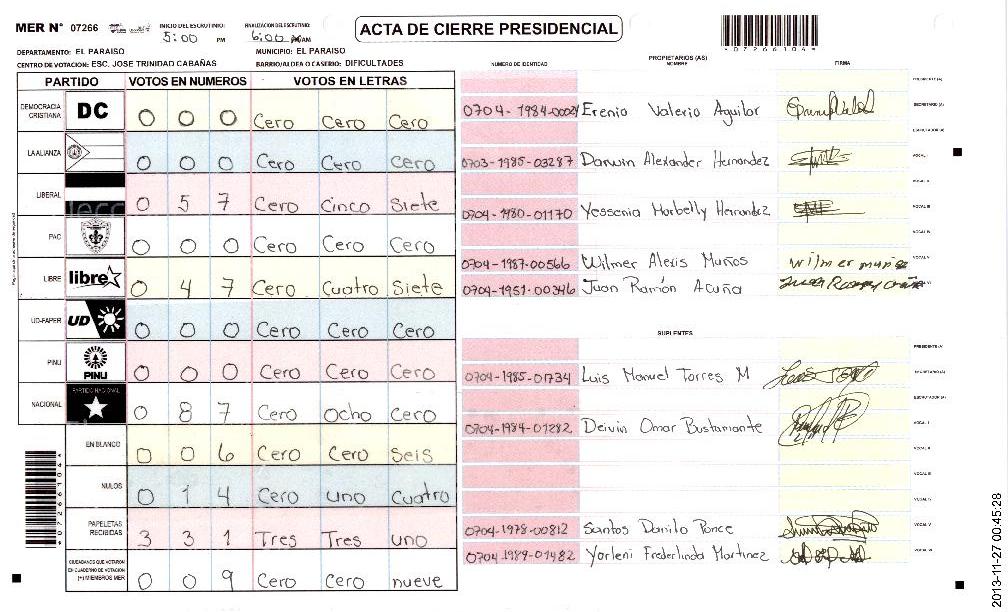 MER N° 07266 INICIO DEL ESCRUTINIO: 5:00 PM FINALIZACION DEL ESCRUTINIO: 6:00 AM
ACTA DE CIERRE PRESIDENCIAL
*07266104*
DEPARTAMENTO: EL PARAISO MUNICIPIO: EL PARAISO
CENTRO DE VOTACION: ESC. JOSE TRINIDAD CABAÑAS BARRIO/ALDEA O CASERIO: DIFICULTADES
PARTIDO VOTOS EN NUMEROS VOTOS EN LETRAS
DEMOCRACIA CRISTIANA DC 0 0 0 Cero Cero Cero
LA ALIANZA 0 0 0 Cero Cero cero
LIBERAL 0 5 7 Cero Cinco Siete
PAC 0 0 0 Cero Cero Cero
LIBRE libre 0 4 7 Cero Cuatro Siete
UD-FAPER UD 0 0 0 Cero Cero Cero
PINU PINU 0 0 0 Cero Cero Cero
NACIONAL PARTIDO NACIONAL 0 8 7 Cero Ocho cero
EN BLANCO 0 0 6 Cero Cero Seis
NULOS 0 1 4 Cero uno Cuatro
PAPELETAS RECIBIDAS 3 3 1 Tres Tres uno
CIUDADANOS QUE VOTARON EN CUADERNO DE VOTACION (+) MIEMBROS MER 0 0 9 Cero Cero nueve
*07266104*
PROPIETARIOS (AS)
NUMERO DE IDENTIDAD NOMBRE FIRMA
PRESIDENTE (A)
0704-1984-00024 Erenio Valerio Aguilar SECRETARIO (A)
ESCRUTADOR (A)
0703-1985-03287 Darwin Alexander Hernandez VOCAL I
VOCAL II
0704-1980-01170 Yessenia Marbelly Hernandez VOCAL III
VOCAL IV
0704-1987-00566 Wilmer Alexis Muños wilmer muños VOCAL V
0704-1951-00346 Juan Ramón Acuña VOCAL VI
SUPLENTES
PRESIDENTE (A)
0704-1985-01734 Luis Manuel Torres M SECRETARIO (A)
ESCRUTADOR (A)
0704-1984-01282 Deivin Omar Bustamante VOCAL I
VOCAL II
VOCAL III
VOCAL IV
0704-1978-00812 Santos Danilo Ponce VOCAL V
0704-1989-01482 Yorleni Frederlinda Martinez VOCAL VI
2013-11-27 00:45:28